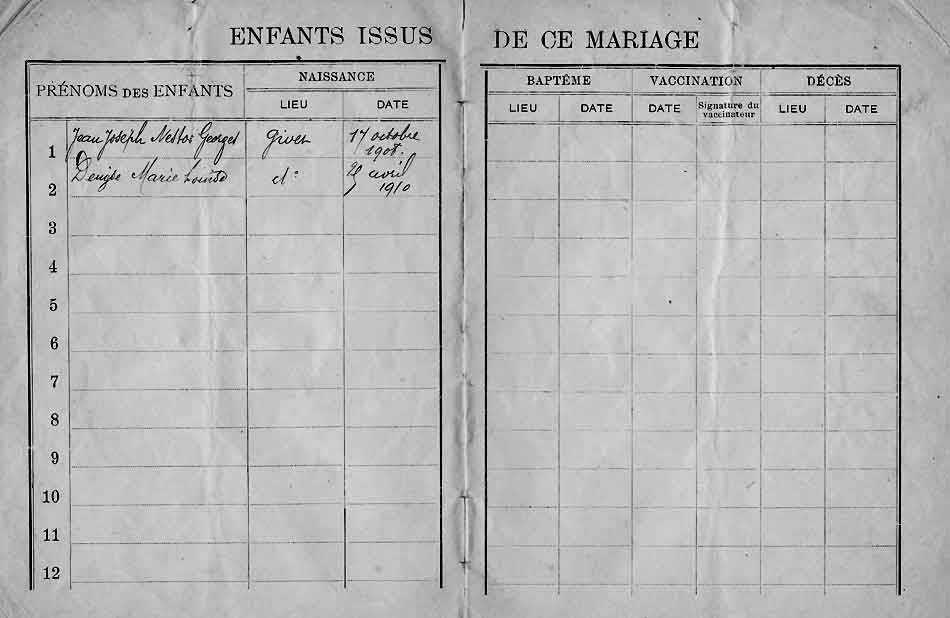 ENFANTS ISSUS DE CE MARIAGE
PRÉNOMS DES ENFANTS
NAISSANCE
LIEU DATE
BAPTÊME VACCINATION DÉCÈS
LIEU DATE DATE Signature du vaccinateur LIEU DATE
1 Jean Joseph Nestor Georges Givet 17 octobre
1908.
2 Denise Marie Louise do avril
1910
3
4
5
6
7
8
9
10
11
12